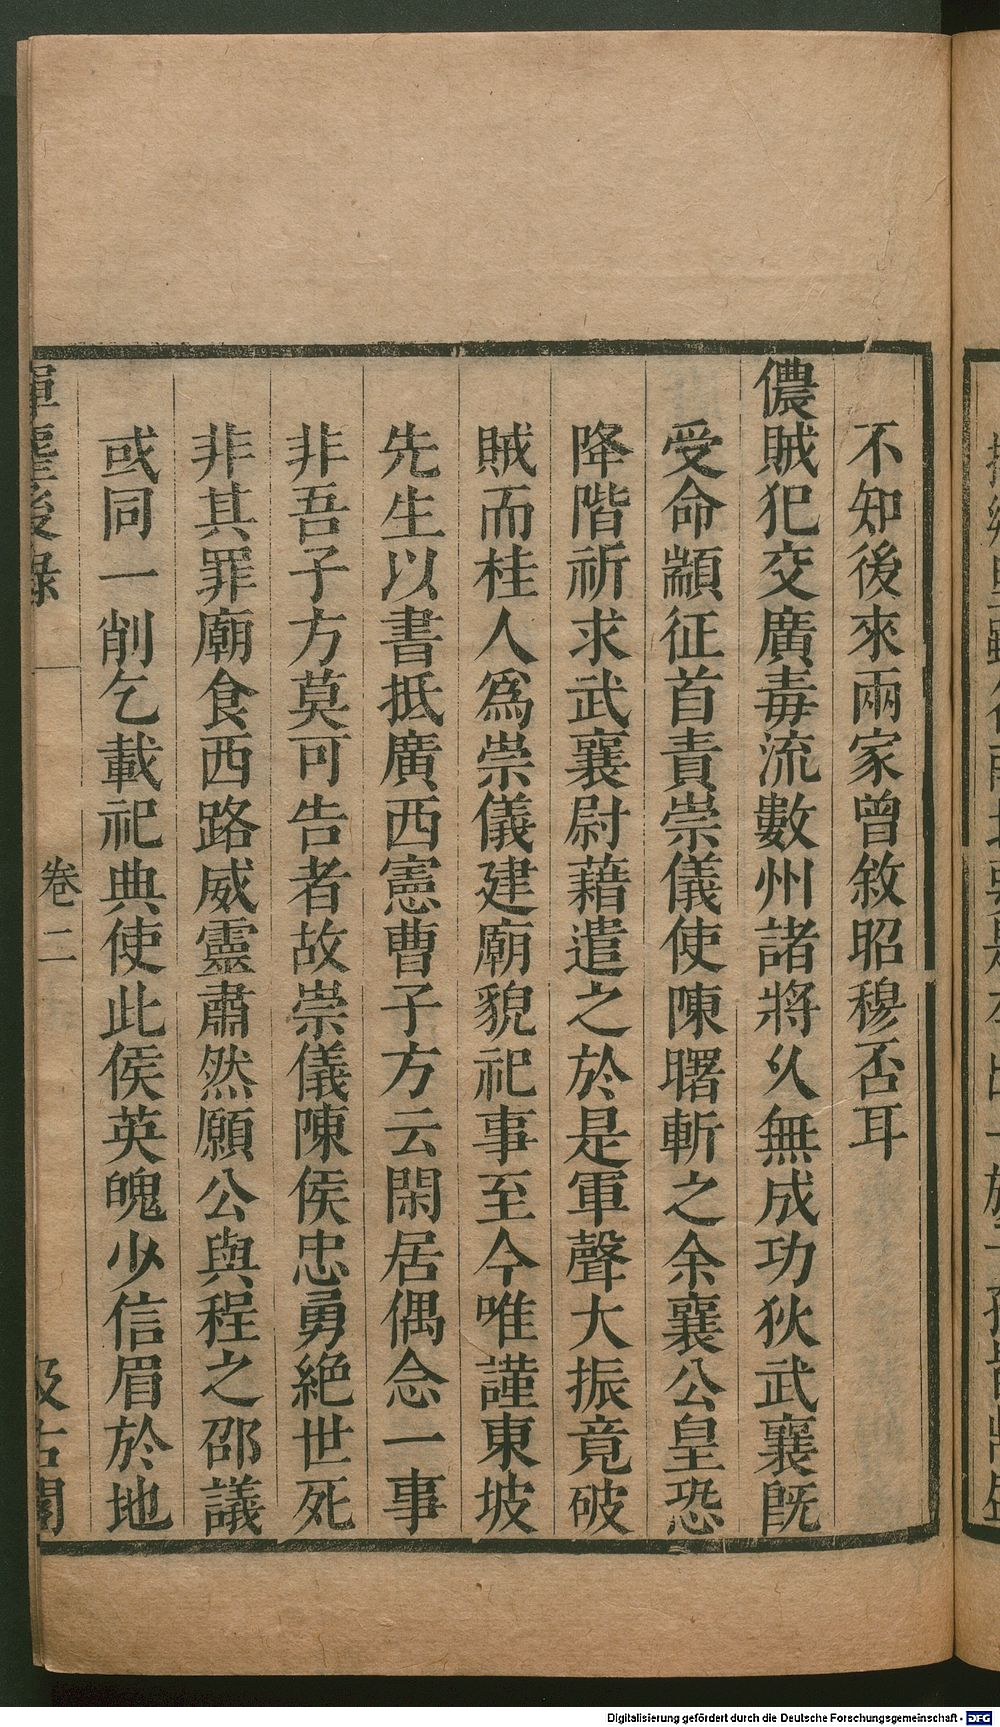 不知後來兩家曾敘昭穆否耳
儂賊犯交廣毒流數州諸將乆無成功狄武襄旣
受命顓征首責崇儀使陳曙斬之余襄公皇恐
降階祈求武襄尉藉遣之於是軍聲大振竟破
賊而桂人爲崇儀建廟貌祀事至今唯謹東坡
先生以書抵廣西憲曹子方云閑居偶念一事
非吾子方莫可告者故崇儀陳侯忠勇絶世死
非其罪廟食西路威靈肅然願公與程之邵議
或同一削乞載祀典使此侯英魄少信眉於地
揮麈後錄
卷二
汲古閣
Digitalisierung gefördert durch die Deutsche Forschungsgemeinschaft - DFG